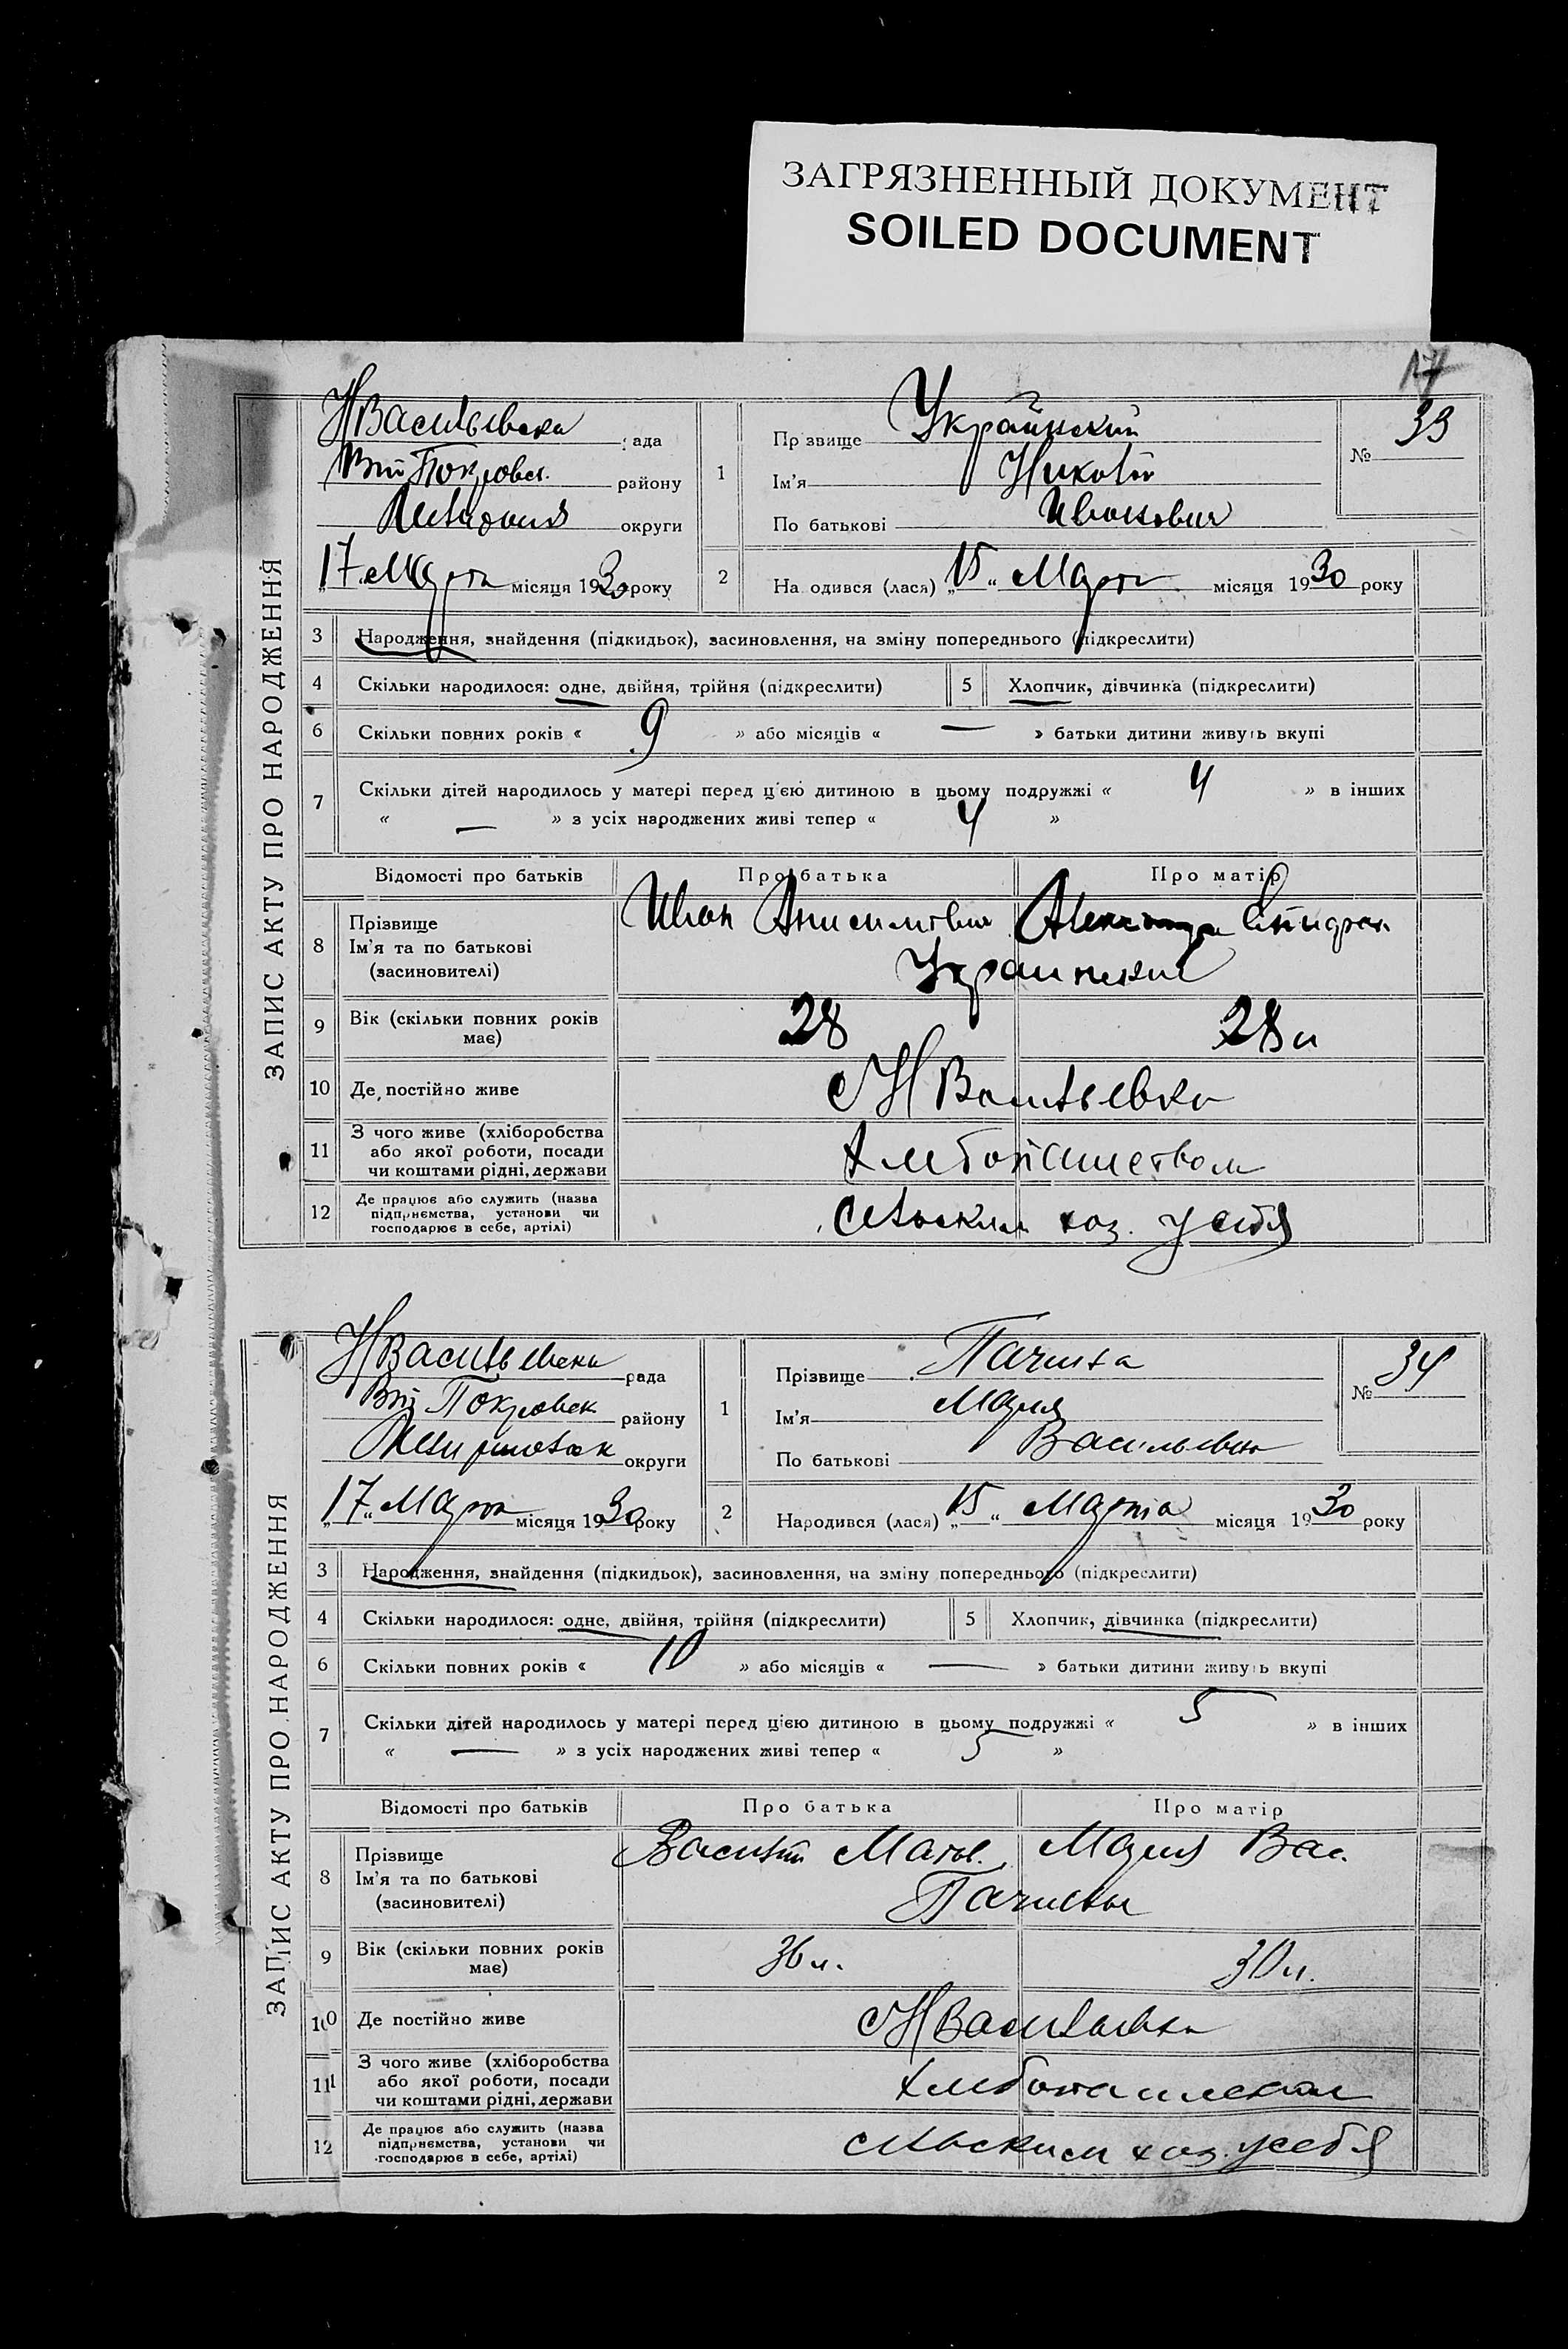 ЗАГРЯЗНЕННЫЙ ДОКУМЕНТ
SOILED DOCUMENT
17
ЗАПИС АКТУ ПРО НАРОДЖЕННЯ
НВасильевска рада
Вел Покровск. району
округи
„17" Марта місяця 1930 року
1
Прізвище Украинский
Ім'я Николай
По батькові Иванович
№ 33
2
Народився (лася) „15" Марта місяця 1930 року
3 Народження, знайдення (підкидьок), засиновлення, на зміну попереднього (підкреслити)
4 Скільки народилося: одне, двійня, трійня (підкреслити)
5 Хлопчик, дівчинка (підкреслити)
6 Скільки повних років « 9 » або місяців « — » батьки дитини живуть вкупі
7 Скільки дітей народилось у матері перед цією дитиною в цьому подружжі « 4 » в інших
« — » з усіх народжених живі тепер « 4 »
Відомості про батьків Про батька Про матір
8 Прізвище
Ім'я та по батькові
(засиновителі)
Иван Анисимович Александра
Украинские
9 Вік (скільки повних років має) 28 28 л
10 Де постійно живе с Н Васильевка
11 З чого живе (хліборобства або якої роботи, посади чи коштами рідні, держави
хлебопашеством
12 Де працює або служить (назва підприємства, установи чи господарює в себе, артілі)
сельским хоз. у себя
ЗАПИС АКТУ ПРО НАРОДЖЕННЯ
НВасильевска рада
Вел Покровск району
округи
„17" Марта місяця 1930 року
1
Прізвище Пачина
Ім'я Мария
По батькові Васильевна
№ 34
2
Народився (лася) „15" Марта місяця 1930 року
3 Народження, знайдення (підкидьок), засиновлення, на зміну попереднього (підкреслити)
4 Скільки народилося: одне, двійня, трійня (підкреслити)
5 Хлопчик, дівчинка (підкреслити)
6 Скільки повних років « 10 » або місяців « — » батьки дитини живуть вкупі
7 Скільки дітей народилось у матері перед цією дитиною в цьому подружжі « 5 » в інших
« — » з усіх народжених живі тепер « 5 »
Відомості про батьків Про батька Про матір
8 Прізвище
Ім'я та по батькові
(засиновителі)
Василий Матв. Мария Вас.
9 Вік (скільки повних років має) 36 л. 30 л.
10 Де постійно живе с Н Васильевка
11 З чого живе (хліборобства або якої роботи, посади чи коштами рідні, держави
хлебопашеством
12 Де працює або служить (назва підприємства, установи чи господарює в себе, артілі)
сельским хоз. у себя